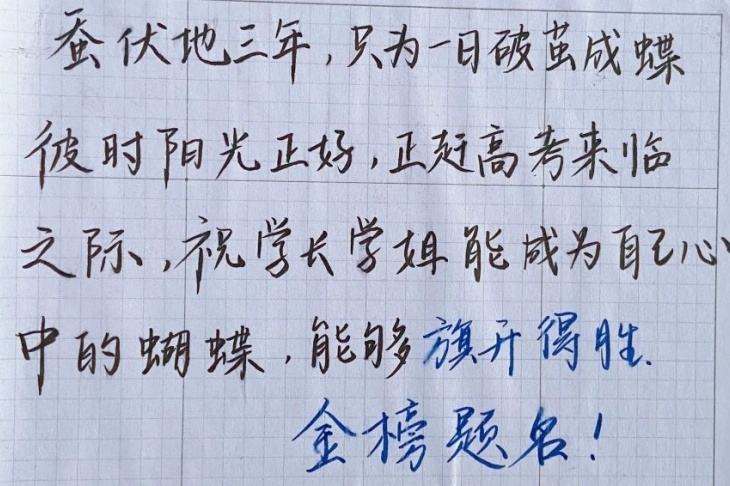 蚕伏地三年,只为一日破茧成蝶
彼时阳光正好,正赶高考来临
之际,祝学长学姐能成为自己心
中的蝴蝶,能够旗开得胜.
金榜题名!